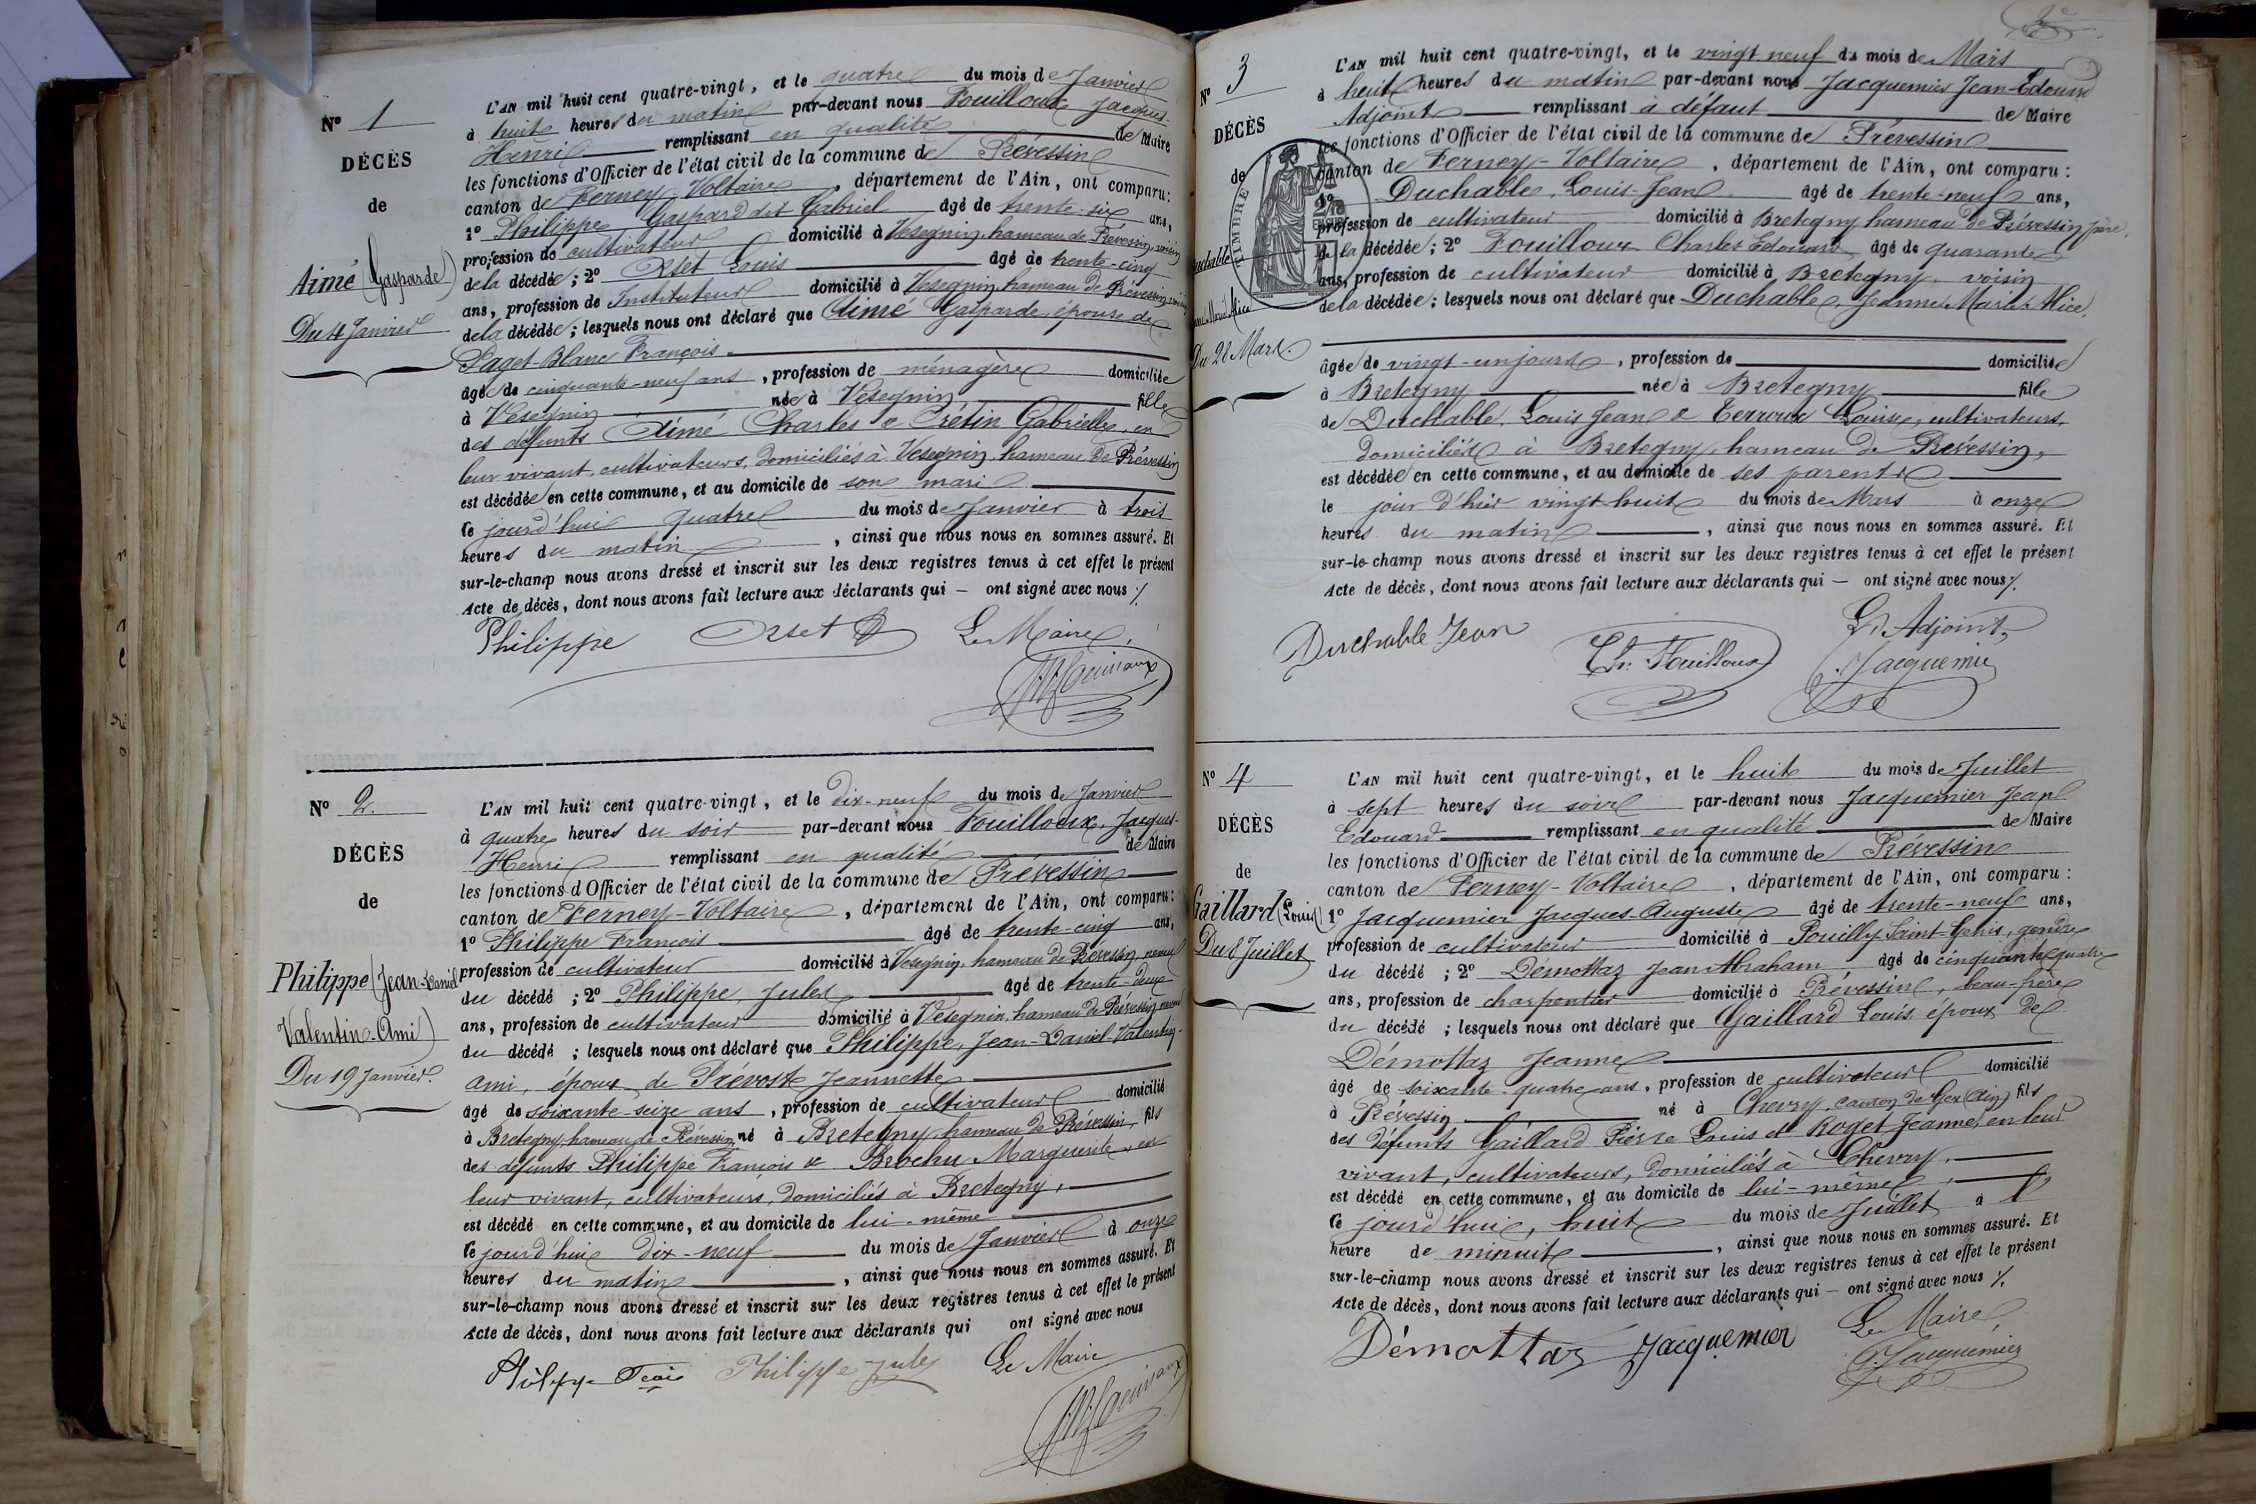 N° 1
DÉCÈS
de
Aimé (Gasparde)
Du 4 Janvier
L'AN mil huit cent quatre-vingt, et le quatre du mois de Janvier
à huit heures du matin par-devant nous Fouilloux Jacques-
Henri remplissant en qualité de Maire
les fonctions d'Officier de l'état civil de la commune de Prévessin
canton de Ferney-Voltaire, département de l'Ain, ont comparu:
1° Philippe Gaspard dit Gabriel âgé de trente-six ans,
profession de cultivateur domicilié à Vesegnin, hameau de Prévessin, voisin
de la décédée; 2° Orset Louis âgé de trente-cinq
ans, profession de Instituteur domicilié à Vesegnin, hameau de Prévessin, voisin
de la décédée; lesquels nous ont déclaré que Aimé Gasparde, épouse de
Paget-Blanc François
âgée de cinquante-neuf ans, profession de ménagère domiciliée
à Vesegnin née à Vesegnin fille
des défunts Aimé Charles & Crétin Gabrielle, en
leur vivant, cultivateurs, domiciliés à Vesegnin, hameau de Prévessin
est décédée en cette commune, et au domicile de son mari
ce jourd'hui quatre du mois de Janvier à trois
heures du matin, ainsi que nous nous en sommes assuré. Et
sur-le-champ nous avons dressé et inscrit sur les deux registres tenus à cet effet le présent
Acte de décès, dont nous avons fait lecture aux déclarants qui — ont signé avec nous ./.
Philippe Orset Le Maire,
N° 2.
DÉCÈS
de
Philippe (Jean-Daniel
Valentin-Ami)
Du 19 Janvier.
L'AN mil huit cent quatre-vingt, et le dix-neuf du mois de Janvier
à quatre heures du soir par-devant nous Fouilloux, Jacques-
Henri remplissant en qualité de Maire
les fonctions d'Officier de l'état civil de la commune de Prévessin
canton de Ferney-Voltaire, département de l'Ain, ont comparu:
1° Philippe François âgé de trente-cinq ans,
profession de cultivateur domicilié à Vesegnin, hameau de Prévessin, neveu
du décédé; 2° Philippe, Jules âgé de trente-deux
ans, profession de cultivateur domicilié à Vesegnin, hameau de Prévessin, neveu
du décédé; lesquels nous ont déclaré que Philippe, Jean-Daniel-Valentin-
Ami, époux de Prévost Jeannette
âgé de soixante-seize ans, profession de cultivateur domicilié
à Bretegny, hameau de Prévessin, né à Bretegny, hameau de Prévessin, fils
des défunts Philippe François & Brochu Marguerite, en
leur vivant, cultivateurs, domiciliés à Bretegny,
est décédé en cette commune, et au domicile de lui-même
ce jourd'hui dix-neuf du mois de Janvier à onze
heures du matin, ainsi que nous nous en sommes assuré. Et
sur-le-champ nous avons dressé et inscrit sur les deux registres tenus à cet effet le présent
Acte de décès, dont nous avons fait lecture aux déclarants qui ont signé avec nous
Philippe Fçois Philippe Jules Le Maire
N° 3
DÉCÈS
de
Du 28 Mars.
TIMBRE
L'AN mil huit cent quatre-vingt, et le vingt neuf du mois de Mars
à huit heures du matin par-devant nous Jacquemier Jean-Edouard
Adjoint remplissant à défaut de Maire
les fonctions d'Officier de l'état civil de la commune de Prévessin
canton de Ferney-Voltaire, département de l'Ain, ont comparu:
1° Duchable, Louis-Jean âgé de trente-neuf ans,
profession de cultivateur domicilié à Bretegny hameau de Prévessin, père,
de la décédée; 2° Fouilloux Charles Edouard âgé de quarante
ans, profession de cultivateur domicilié à Bretegny, voisin
de la décédée; lesquels nous ont déclaré que Duchable, Jeanne Marie Alice,
âgée de vingt-un jours, profession de domiciliée
à Bretegny née à Bretegny fille
de Duchable, Louis Jean & Terroux Louise, cultivateurs,
domiciliés à Bretegny, hameau de Prévessin,
est décédée en cette commune, et au domicile de ses parents
le jour d'hier vingt-huit du mois de Mars à onze
heures du matin, ainsi que nous nous en sommes assuré. Et
sur-le-champ nous avons dressé et inscrit sur les deux registres tenus à cet effet le présent
Acte de décès, dont nous avons fait lecture aux déclarants qui — ont signé avec nous ./.
Duchable Jean Ch. Fouilloux L'Adjoint,
Jacquemier
N° 4
DÉCÈS
de
Gaillard (Louis)
Du 8 Juillet
L'AN mil huit cent quatre-vingt, et le huit du mois de Juillet
à sept heures du soir par-devant nous Jacquemier Jean
Edouard remplissant en qualité de Maire
les fonctions d'Officier de l'état civil de la commune de Prévessin
canton de Ferney-Voltaire, département de l'Ain, ont comparu:
1° Jacquemier Jacques-Auguste âgé de trente-neuf ans,
profession de cultivateur domicilié à Pouilly Saint-Genis, gendre
du décédé; 2° Démottaz Jean Abraham âgé de cinquante quatre
ans, profession de charpentier domicilié à Prévessin, beau-frère
du décédé; lesquels nous ont déclaré que Gaillard Louis époux de
Démottaz Jeanne
âgé de soixante-quatre ans, profession de cultivateur domicilié
à Prévessin né à Chevry, canton de Gex (Ain) fils
des défunts Gaillard Pierre Louis et Roget Jeanne, en leur
vivant, cultivateurs, domiciliés à Chevry,
est décédé en cette commune, et au domicile de lui-même,
ce jourd'hui, huit du mois de Juillet à l'
heure de minuit, ainsi que nous nous en sommes assuré. Et
sur-le-champ nous avons dressé et inscrit sur les deux registres tenus à cet effet le présent
Acte de décès, dont nous avons fait lecture aux déclarants qui — ont signé avec nous ./.
Démottaz Jacquemier Le Maire
Jacquemier